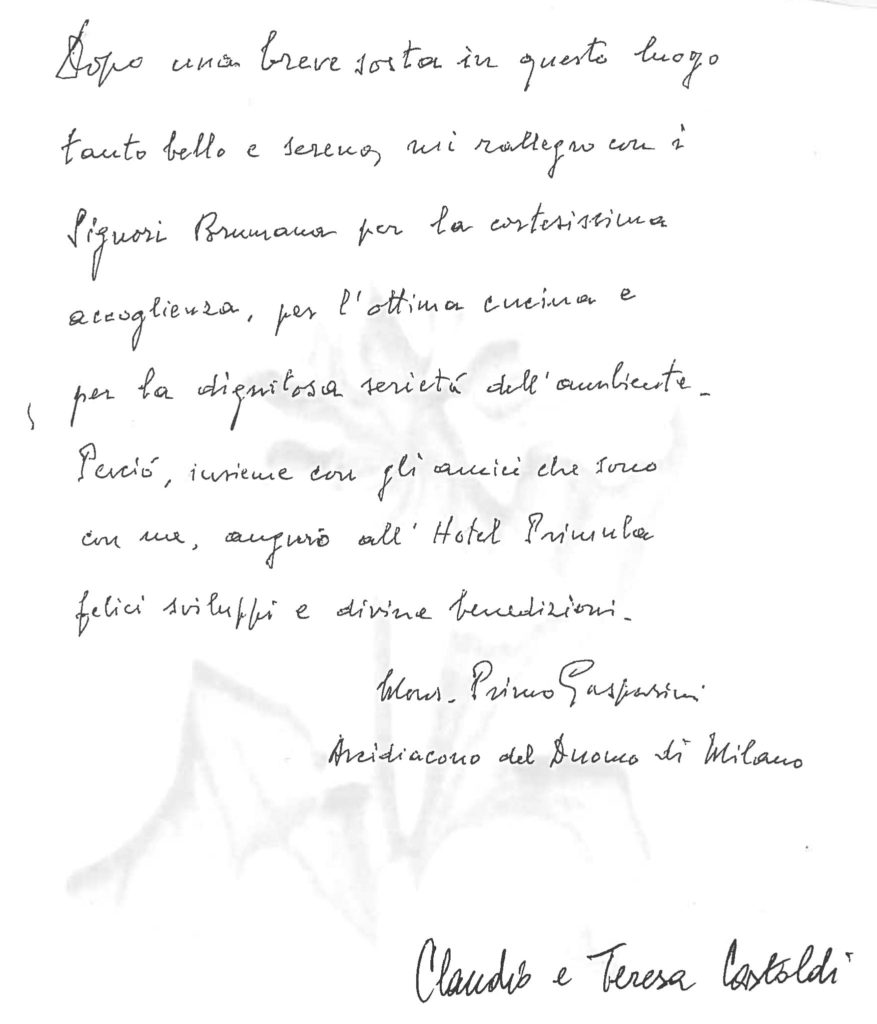 Dopo una breve sosta in questo luogo
tanto bello e sereno, mi rallegro con i
Signori Brumana per la cortesissima
accoglienza, per l'ottima cucina e
per la dignitosa serietá dell'ambiente.
Perció, insieme con gli amici che sono
con me, auguro all'Hotel Primula
felici sviluppi e divine benedizioni.
Mons. Primo Gasparini
Arcidiacono del Duomo di Milano
Claudio e Teresa Castoldi